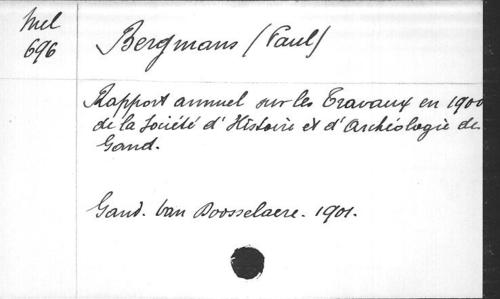 Mel
696
Bergmans (Paul)
Rapport annuel sur les Travaux en 1900
de la Société d'Histoire et d'Archéologie de
Gand.
Gand. Van Doosselaere. 1901.